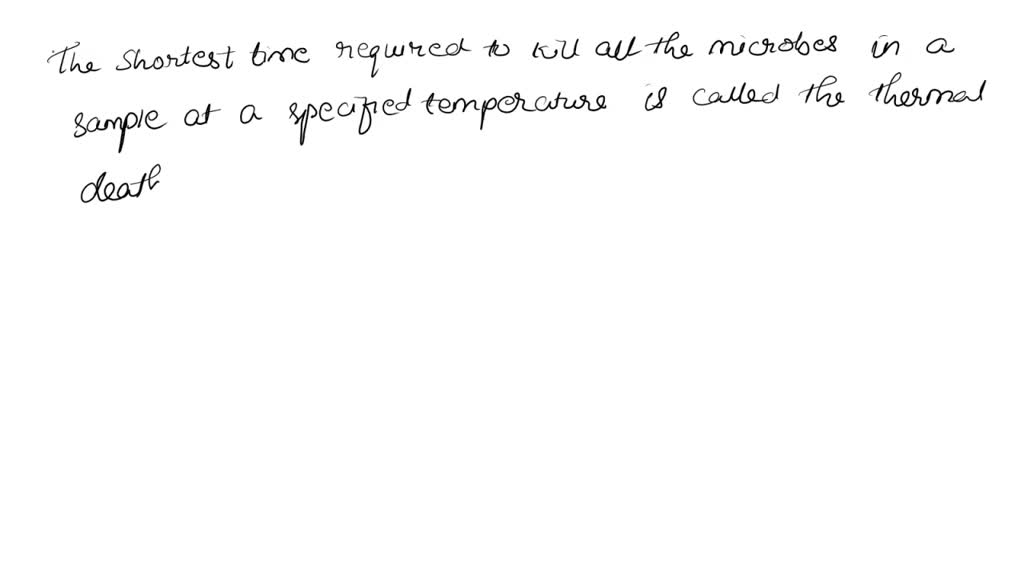 The shortest time required to kill all the microbes in a
sample at a specified temperature is called the thermal
death